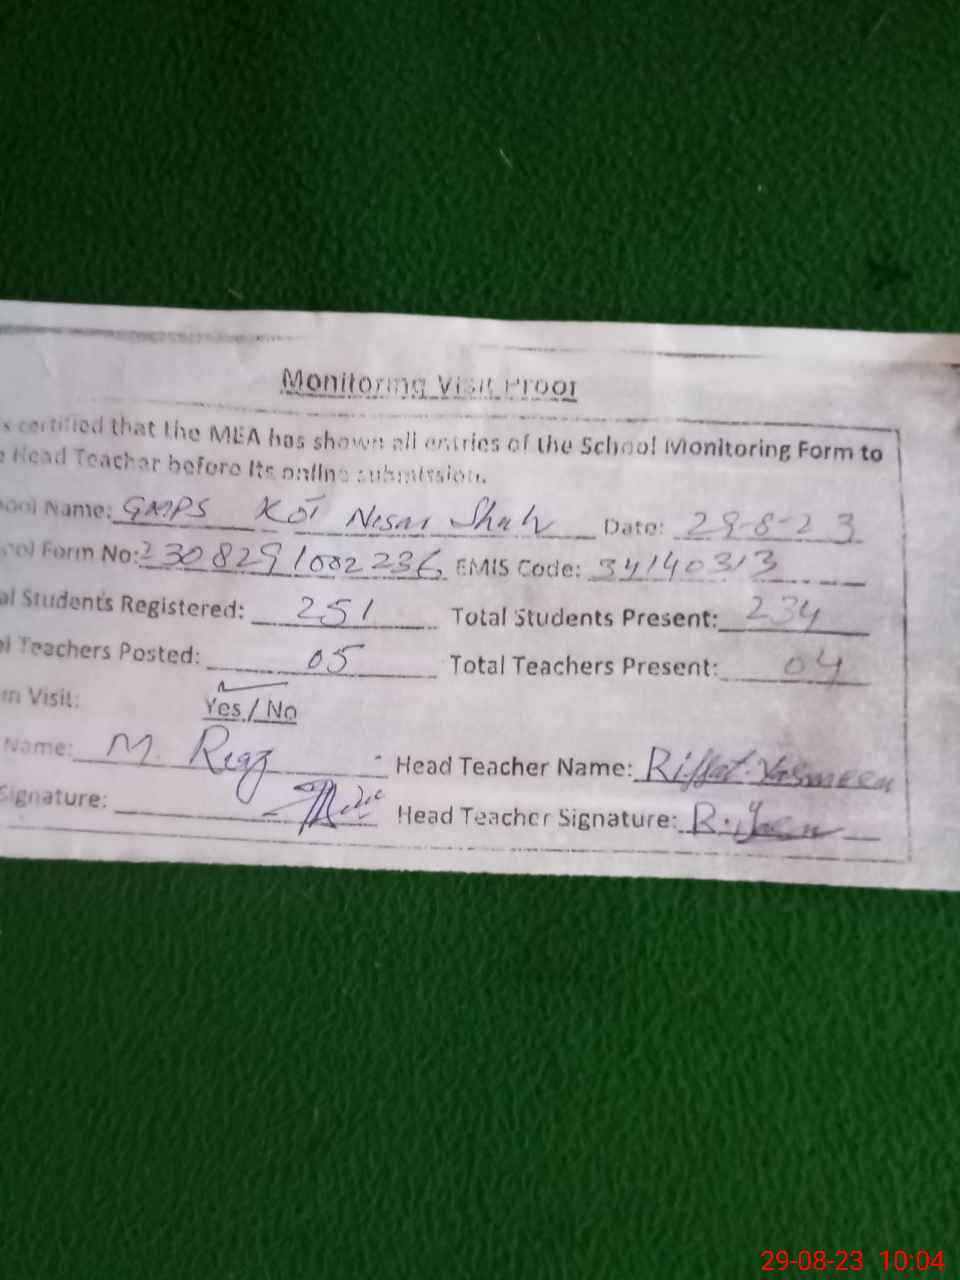 Monitoring Visit Proof
certified that the MEA has shown all entries of the School Monitoring Form to
Head Teacher before its online submission.
ool Name: GMPS Kot Nesar Shah Date: 29-8-23
ool Form No: 2308291002236 EMIS Code: 34140313
al Students Registered: 251 Total Students Present: 234
l Teachers Posted: 05 Total Teachers Present: 04
m Visit: Yes / No
Name: M. Reaz Head Teacher Name: Riffat Yasmeen
Signature: Head Teacher Signature: R.
29-08-23 10:04